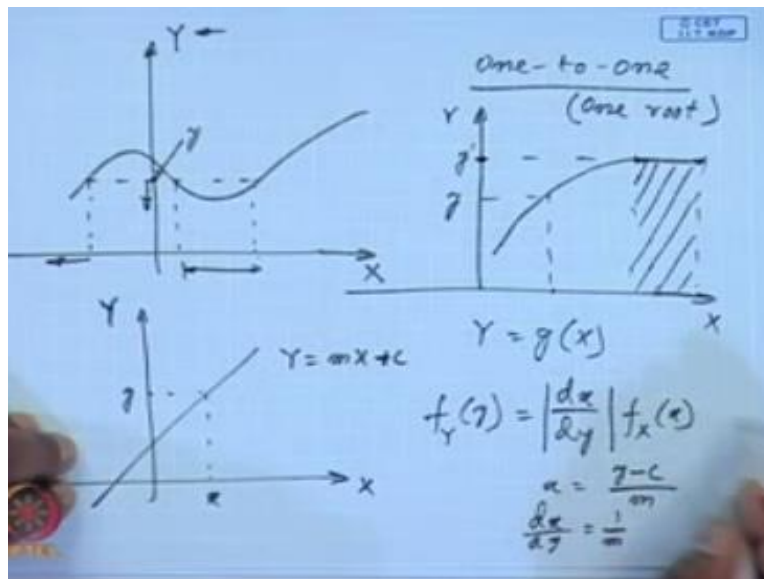 Y
y
X
One-to-one
(One root)
Y
y'
y
X
Y
Y = mX + c
y
x
X
Y = g(X)
f_Y(y) = |dx/dy| f_X(x)
x = y-c/m
dx/dy = 1/m